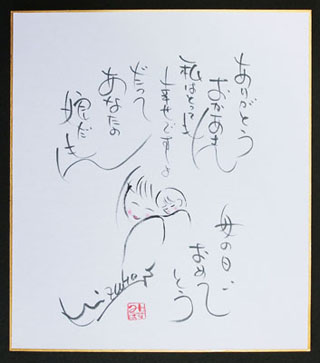 ありがとう
おかあさん
私はとっても
しあせですよ
だって
あなたの
娘だもん
母の日、
おめで
とう